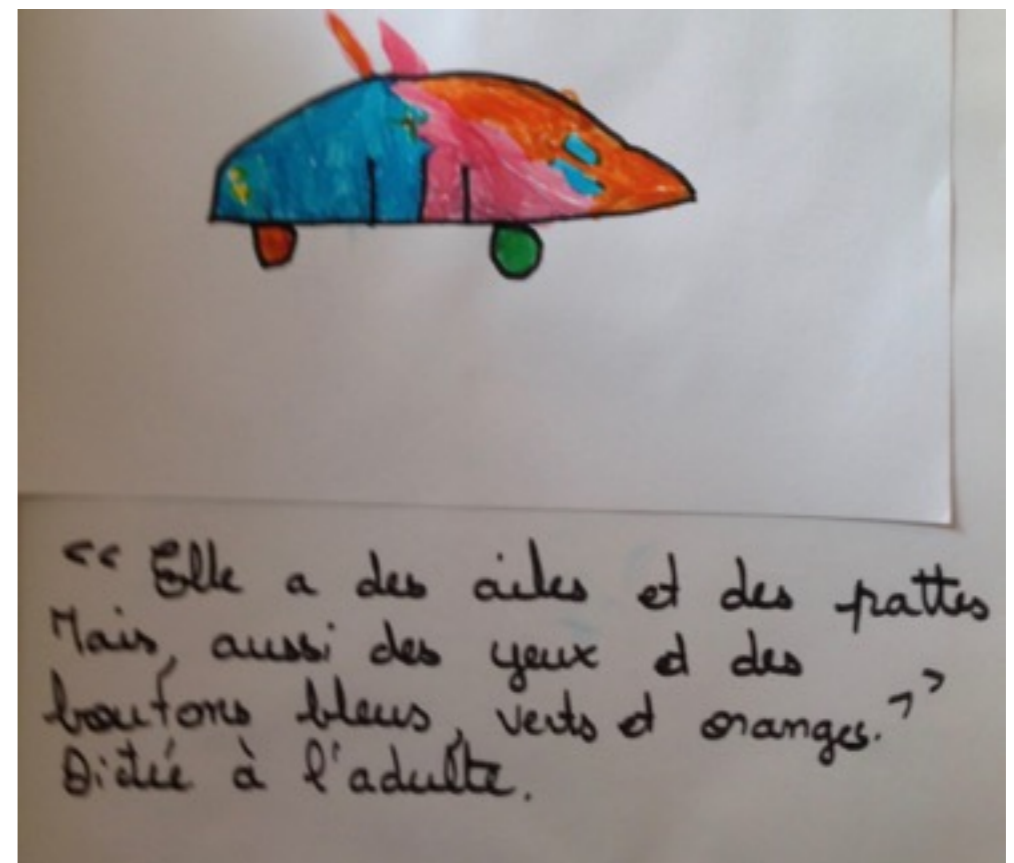 “ Elle a des ailes et des pattes
Mais, aussi des yeux et des
boutons bleus, verts et oranges. ”
Dictée à l'adulte.